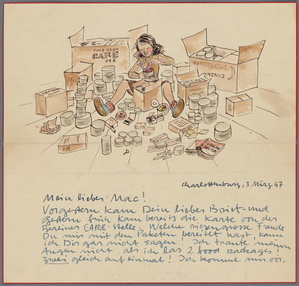 CARE
Charlottenburg, 3. März 47
Mein lieber Mac!
Vorgestern kam Dein lieber Brief und
gestern früh kam bereits die Karte von der
Berliner CARE-Stelle. Welche riesengrosse Freude
Du mir mit den Paketen bereitet hast, kann
ich Dir gar nicht sagen! Ich traute meinen
Augen nicht als ich las 2 food packages!
Zwei gleich auf einmal! Ich komme mir vor,